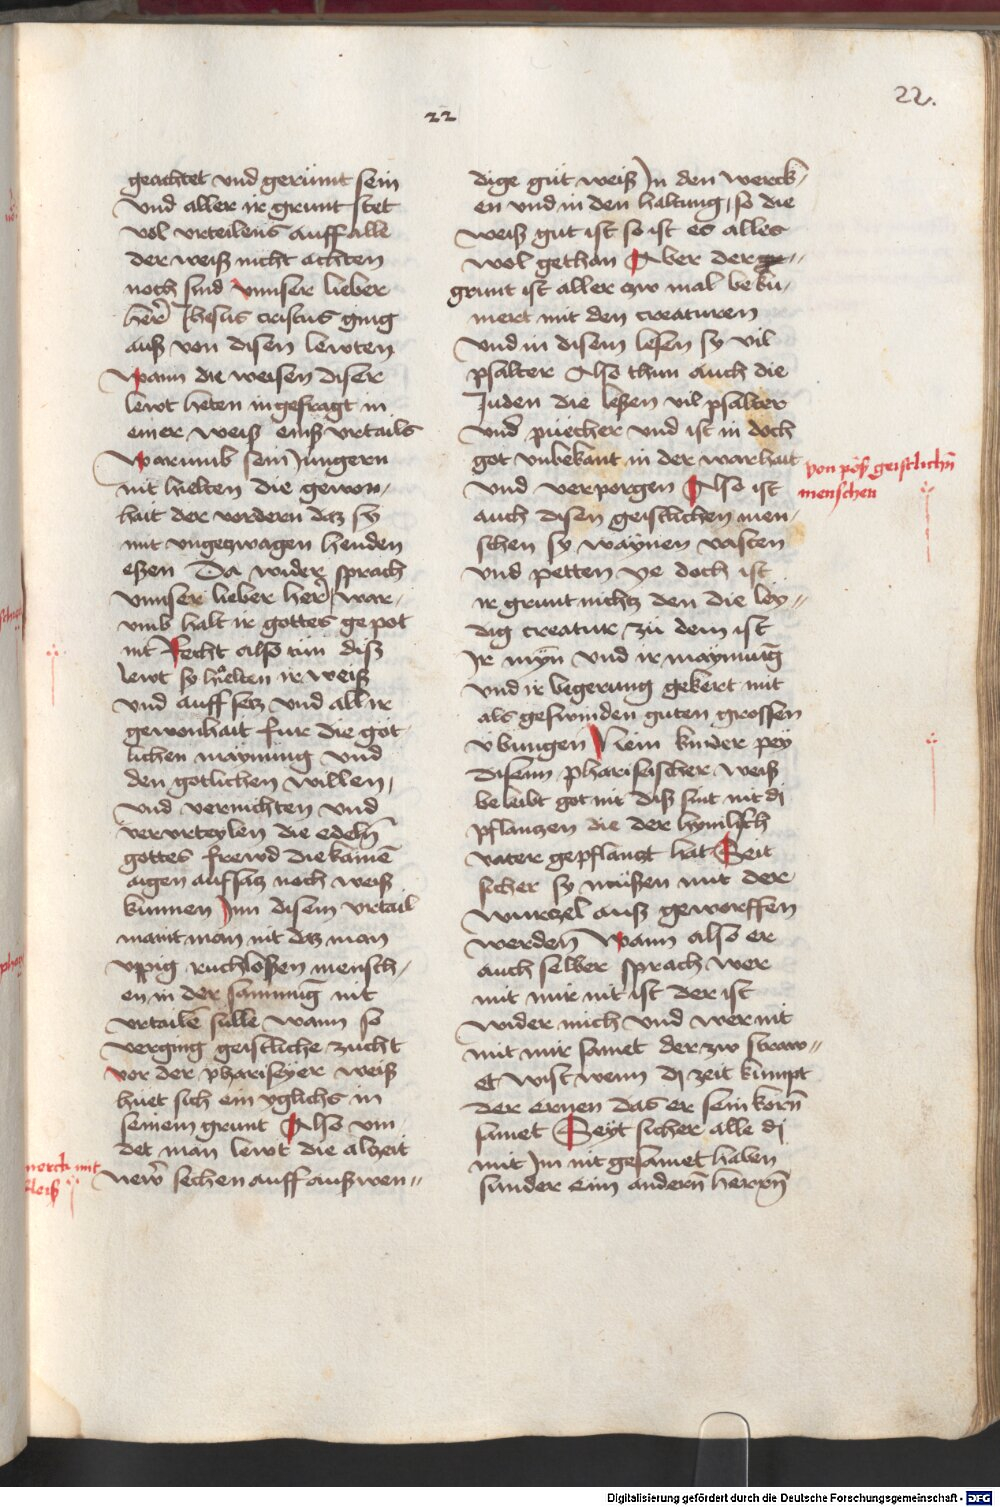 22.
22
geachtet vnd gerümt sein
vnd aller ir grunt stet
vol vrteilens auff alle
der weiß nicht achten
noch sind vnnser lieber
herr̄ Jhesus cristus ging
auß von disen lewten
wann die weisen diser
lewt heten in gefragt in
einer weiß einß vrtails
warumb sein Jungern
nit hielten die gewon,
hait der vordern daz sy
mit vngetzwagen henden
eßen Da wider sprach
vnnser lieber her̄ war,
vmb halt ir gottes gepot
nit Recht also tün diß
lewt sy hielten ir weiß
vnd auff setz vnd all ir
gewonhait fur die got
lichen maynung vnd
den gotlichen willen,
vnd vernichten vnd
ververteylen die edelñ
gottes frewd die kainē
aigen auffsatz noch weiß
kunnen Inn disem vrtail
maint man nit daz man
vppig ruchloßen mensch,
en in der samnūg nit
vrtailē sulle wann so
verging geistliche zucht
vor der phariseyer weiß
huet sich ein yglichs in
seinem grunt Also vin,
det man lewt die alzeit
new̄ sechen auff außwen,,
merck mit
fleiß
dige gut weiß Jn den werck,
en vnd in den haltung, so die
weiß gut ist so ist es alles
wol gethan Aber der
grunt ist aller zw mal bekü,
mert mit den creaturen
vnd in disem leßen sy vil
psalter Also thun auch die
Juden die leßen vil psalter
vnd püecher vnd ist in doch
got vnbekant in der warhait
vnd verporgen Also ist
auch disen geistlichen men,
schen sy waynen vasten
vnd petten ye doch ist
ir grunt nichtz den die ley,,
dig creatur zü dem ist
Jr myn̄ vnd ir maynung
vnd ir begerung gekert mit
als geswinden guten grossen
v̈bungen Nein kinder pey
disem phariseischer weiß
beleibt got nit diß sint nit dj
pflantzen die der hymlisch
vater gepflantzt hat Seit
sicher sy müßen mit der
wurczel auß geworffen
werden wann also er
auch selber sprach wer
mit mir nit ist der ist
wider mich vnd wer nit
mit mir samet der zw straw,,
et wist wenn dj zeit kumpt
der ernen das er sein korn̄
samet Seyt sicher alle dj
mit Jm nit gesamet haben
sunder eim andern̄ herrn̄
von pöß geistlichn̄
menschen
Digitalisierung gefördert durch die Deutsche Forschungsgemeinschaft - DFG